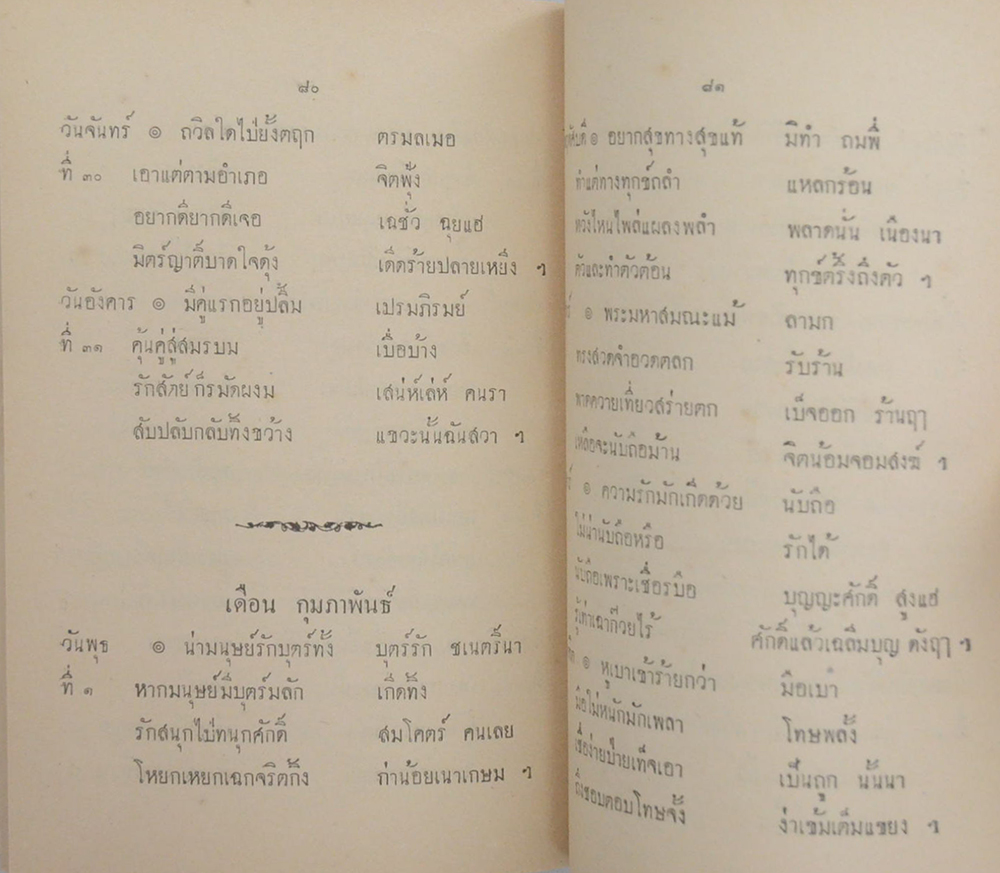 ๘๐
วันจันทร์ ๏ ถวิลใดไป่ยั้งตฤก ตรมลเมอ
ที่ ๓๐ เอาแต่ตามอำเภอ จิตพุ้ง
อยากดียากดีเจอ เฉชั่ว ฉุยแฮ
มิตร์ญาติ์บาดใจดุ้ง เด็ดร้ายปลายเหยิง ๆ
วันอังคาร ๏ มีคู่แรกอยู่ปลื้ม เปรมภิรมย์
ที่ ๓๑ คุ้นคู่สู่สมรบม เบื่อบ้าง
รักสัตย์ก็รมัดผงม เสน่ห์เล่ห์ คนรา
สับปลับกลับทิ้งขว้าง แขวะนั้นฉันสวา ๆ
เดือน กุมภาพันธ์
วันพุธ ๏ น่ามนุษย์รักบุตร์ทั้ง บุตร์รัก ชเนตรีนา
ที่ ๑ หากมนุษย์มีบุตร์มลัก เกิดทิ้ง
รักสนุกไป่ทนุกศักดิ์ สมโคตร์ คนเลย
โหยกเหยกเฉกจริตกิ้ง ก่าน้อยเนาเกษม ๆ
๘๑
๏ อยากสุขทางสุขแท้ มิทำ ถมพี่
ทำแต่ทางทุกข์ถลำ แหลกร้อน
หวังไหนไพล่แผลงพลำ พลาดนั่น เนืองนา
ตัวและทำตัวต้อน ทุกข์ตรึ้งถึงตัว ๆ
๏ พระมหาสมณะแม้ ลามก
ทรงสวดจำอวดตลก รับร้าน
พาดควายเที่ยวสร่ายตก เบ็จออก ร้านฤๅ
เหลือจะนับถือม้าน จิตน้อมจอมสงฆ์ ๆ
๏ ความรักมักเกิดด้วย นับถือ
ไม่น่านับถือหรือ รักได้
นับถือเพราะเชื่อรบือ บุญญะศักดิ์ สูงแฮ
รู้เท่าเฉาก๊วยไร้ ศักดิ์แล้วเฉลิมบุญ ดังฤๅ ๆ
๏ หูเบาเข้าร้ายกว่า มือเบา
มือไม่หนักมักเพลา โทษพลั้ง
เชื่อง่ายป้ายเท็จเอา เป็นถูก นั้นนา
ถึงชอบตอบโทษจั้ง ง่าเข้มเต็มแขยง ๆ